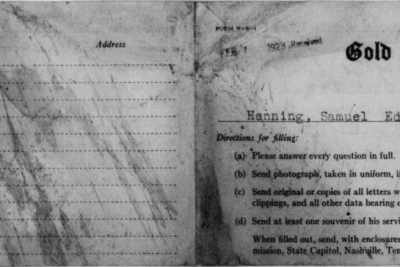 Address
FORM W-W-1
FEB 1 1923 Received
Gold
Henning, Samuel Ed
Directions for filling:
(a) Please answer every question in full.
(b) Send photograph, taken in uniform, i
(c) Send original or copies of all letters w
clippings, and all other data bearing o
(d) Send at least one souvenir of his servi
When filled out, send, with enclosure
mission, State Capitol, Nashville, Ten